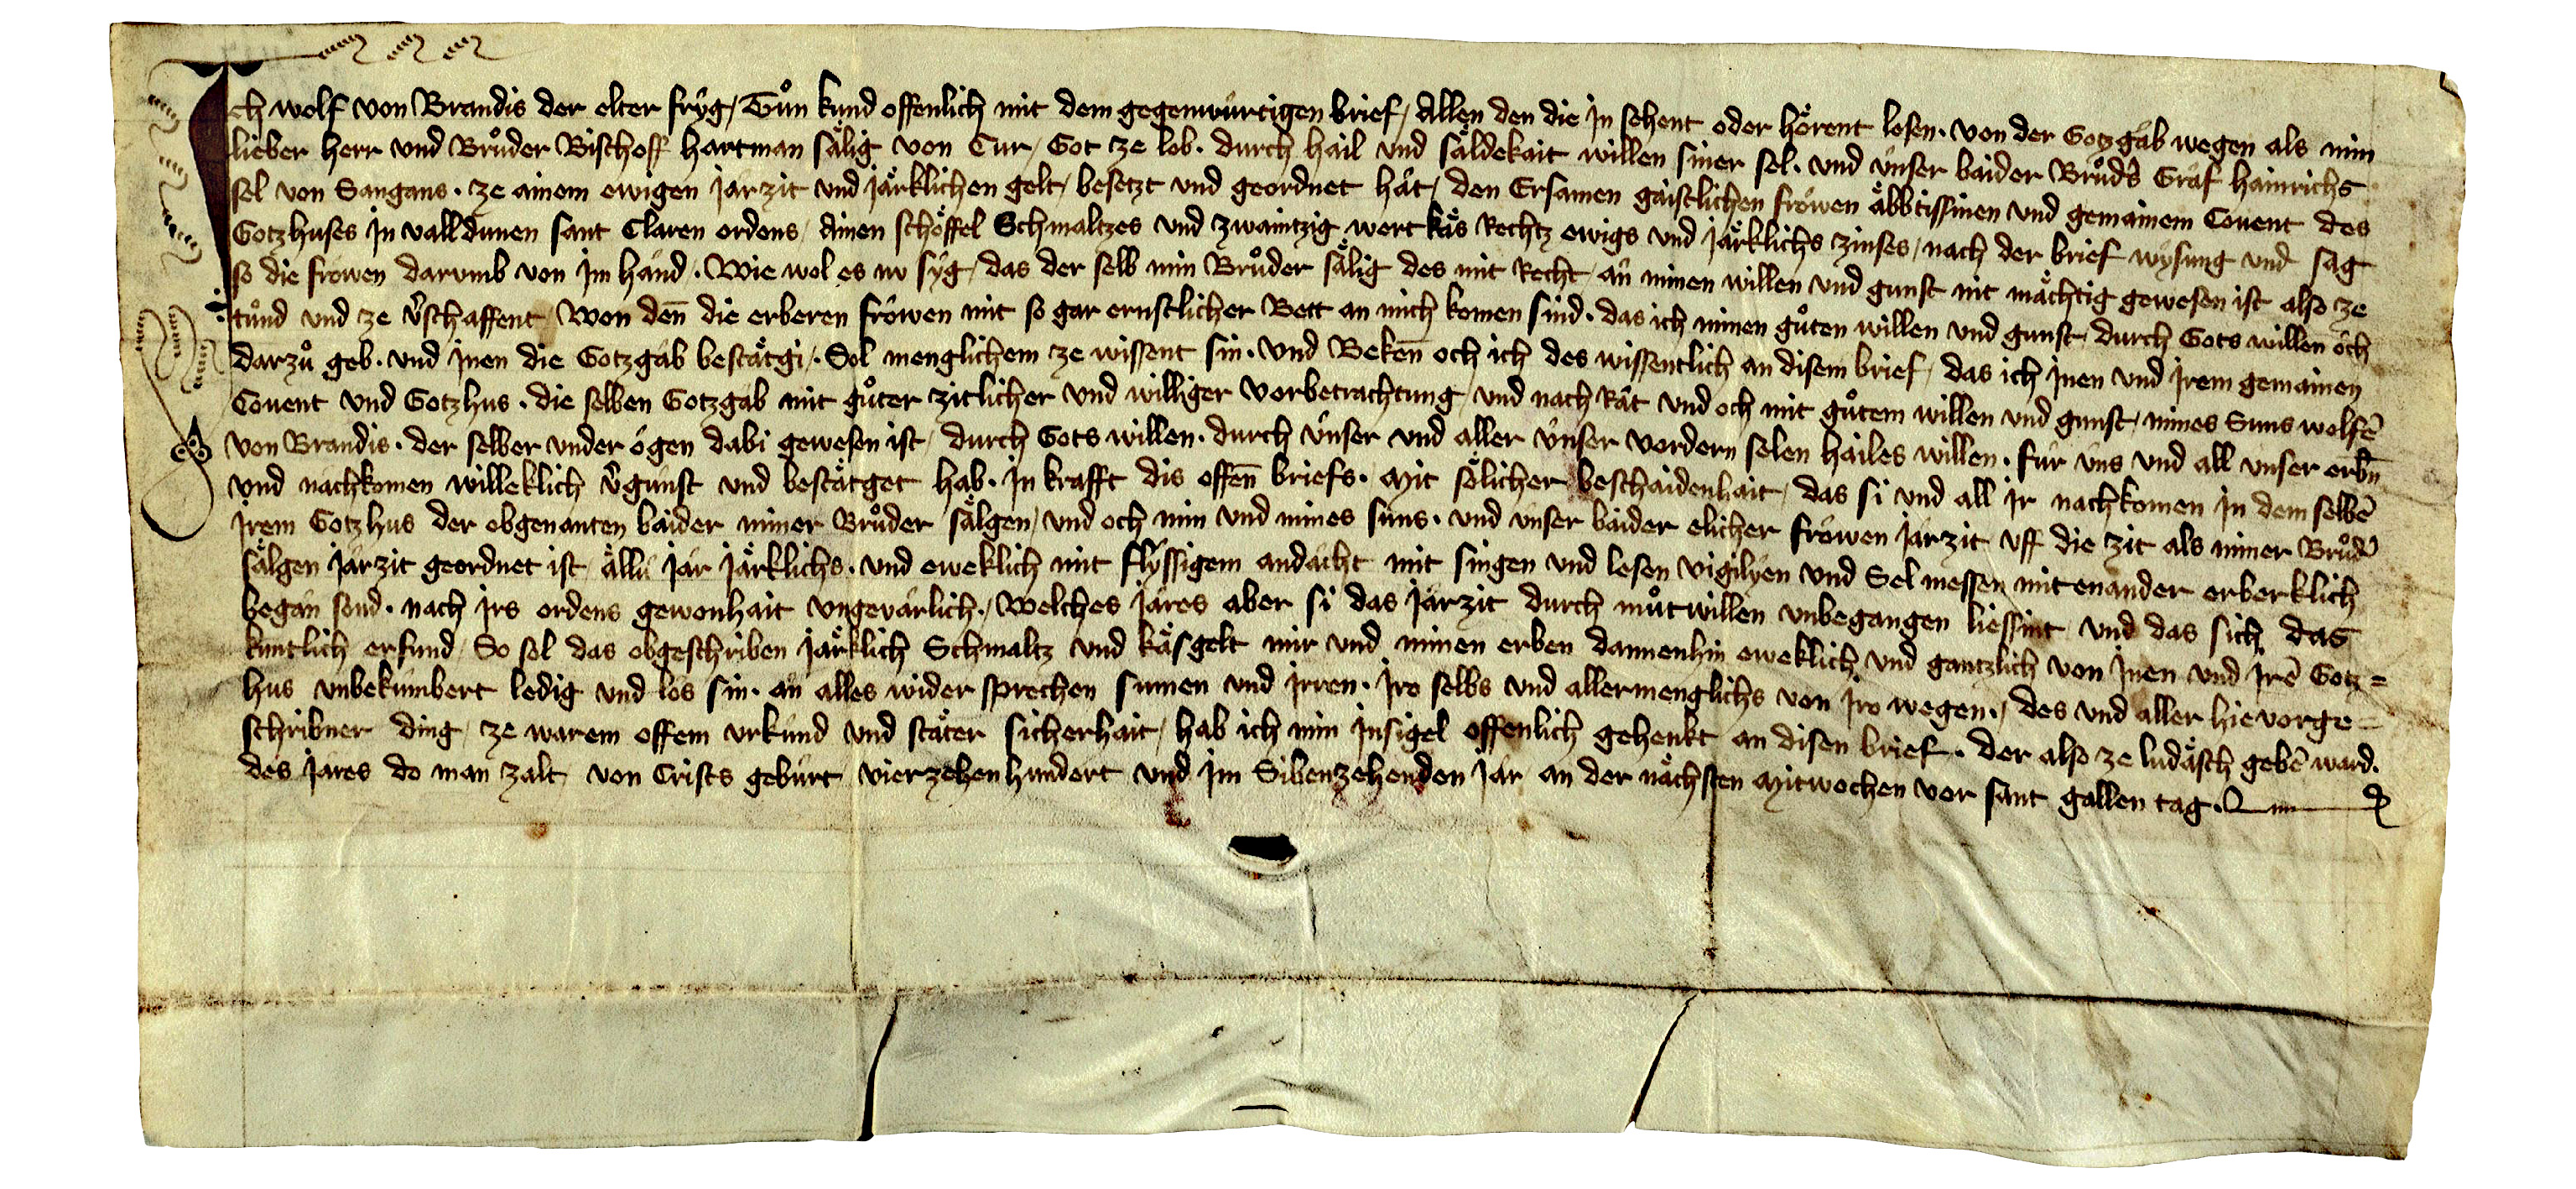 Ich wolf von Brandis der elter frÿg / Tůn kund offenlich mit dem gegenwúrtigen brief / Allen den die jn sehent oder hoͤrent lesen · von der Gotzgab wegen als min
lieber herr vnd Brůder Bischoff hartman saͤlig von Cur / Got ze lob · durch hail vnd saͤldekait willen siner sel · vnd v́nser baider Brůders Graf hainrichs
sel von Sangans · ze ainem ewigen jarzit vnd jaͤrklichen gelt / besetzt vnd geordnet hât / den Ersamen gaistlichen frowen aͤbbtissinen vnd gemainem Couent des
Gotzhuses jn valldunen sant Claren ordens / Ainen schoͤffel Schmaltzes vnd zwaintzig wert kaͤs Rechtz ewigs vnd jaͤrklichs zinses / nach der brief wÿsung vnd sag
so die frowen darvmb von jm hand · Wie wol es nv sÿg / das der selb min Brůder saͤlig des mit Recht / ân minen willen vnd gunst nit maͤchtig gewesen ist also ze
tůnd vnd ze v̉schaffent / Won deñ die erberen frowen mit so gar ernstlicher Bett an mich komen sind · das ich minen gůten willen vnd gunst / durch Gots willen och
darzů geb · vnd jnen die Gotzgab bestaͤtgi / · Sol menglichem ze wissent sin · vnd Bekeñ och ich des wissentlich an disem brief / das ich jnen vnd jrem gemainen
Couent vnd Gotzhus · die selben Gotzgab mit gůter zitlicher vnd williger vorbetrachtung / vnd nach Rât vnd och mit gůtem willen vnd gunst / mines Suns wolfē
von Brandis · der selber vnder ogen dabi gewesen ist / durch Gots willen · durch v́nser vnd aller v́nser vordern selen hailes willen · fúr v́ns vnd all vnser erbn̄
vnd nachkomen willeklich v̉gúnst vnd bestaͤtget hab · jn krafft dis offeñ briefs · Mit soͤlicher beschaidenhait / das si vnd all jr nachkomen jn dem selbē
jrem Gotzhus der obgenanten baider miner Brůder saͤlgen / vnd och min vnd mines suns · vnd v́nser baider elicher frowen jarzit vff die zit als miner Brůd̉
saͤlgen jarzit geordnet ist / aͤllú jar jaͤrklichs · vnd eweklich mit flÿssigem andacht mit singen vnd lesen vigilÿen vnd Selmessen mitenander erberklich
began sond · nach jrs ordens gewonhait vngevarlich · / Welches jares aber si das jarzit durch můtwillen vnbegangen liessint vnd das sich das
kuntlich erfund / So sol das obgeschriben jaͤrklich Schmaltz vnd kaͤsgelt mir vnd minen erben dannenhin eweklich vnd gantzlich von jnen vnd jrē Gotz=
hus vnbekúmbert ledig vnd los sin · ân alles wider sprechen sumen vnd jrren · jro selbs vnd allermenglichs von jro wegen · / des vnd aller hie vorge=
schribner ding / ze warem offem vrkúnd vnd staͤter sicherhait / hab ich min jnsigel offenlich gehenkt an disen brief · der also ze ludaͤsch gebē ward ·
des jares do man zalt von Crists gebúrt vierzehenhundert vnd jm Sibenzehenden jar an der naͤchsten Mitwochen vor sant gallen tag ·